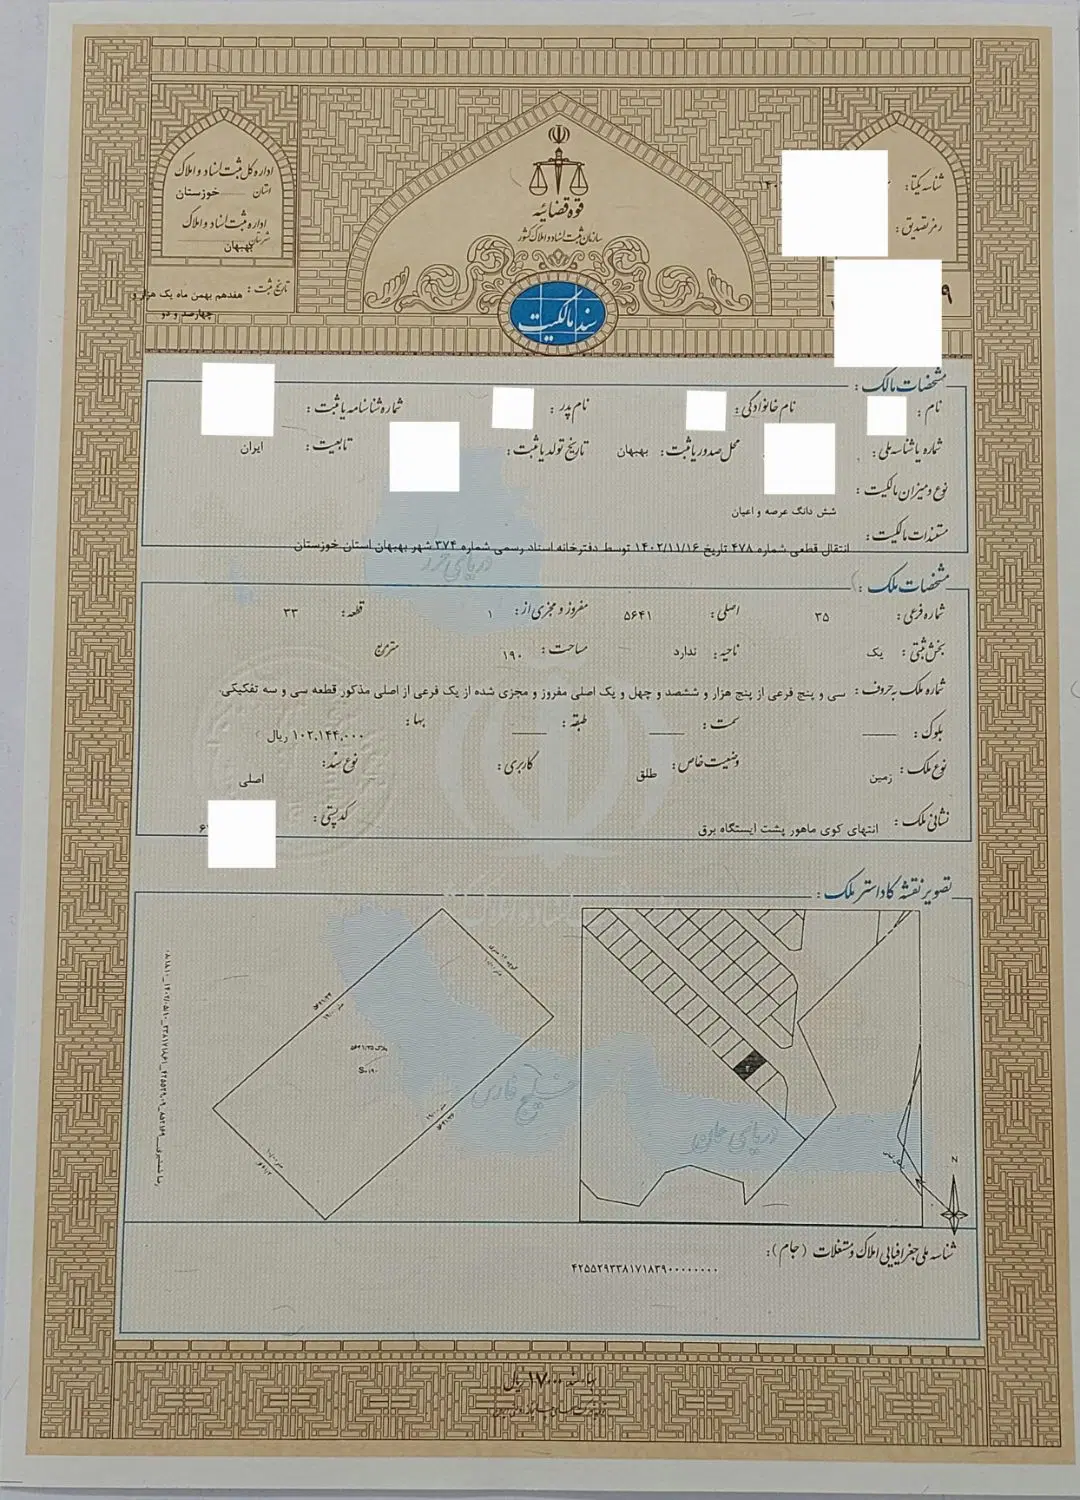 قوه قضائیه
سازمان ثبت اسناد و املاک کشور
سند مالکیت
اداره کل ثبت اسناد و املاک
استان خوزستان
اداره ثبت اسناد و املاک
شهرستان بهبهان
تاریخ ثبت: هفدهم بهمن ماه یک هزار و
چهارصد و دو
شناسه یکتا:
رمز تصدیق:
مشخصات مالک:
نام: نام خانوادگی: نام پدر: شماره شناسنامه یا ثبت:
شماره یا شناسه ملی: محل صدور یا ثبت: بهبهان تاریخ تولد یا ثبت: تابعیت: ایران
نوع و میزان مالکیت:
شش دانگ عرصه و اعیان
مستندات مالکیت:
انتقال قطعی شماره ۴۷۸ تاریخ ۱۴۰۲/۱۱/۱۶ توسط دفترخانه اسناد رسمی شماره ۳۷۴ شهر بهبهان استان خوزستان
دریای خزر
مشخصات ملک:
شماره فرعی: ۳۵ اصلی: ۵۶۴۱ مفروز و مجزی از: ۱ قطعه: ۳۳
بخش ثبتی: یک ناحیه: ندارد مساحت: ۱۹۰ مترمربع
شماره ملک به حروف: سی و پنج فرعی از پنج هزار و ششصد و چهل و یک اصلی مفروز و مجزی شده از یک فرعی از اصلی مذکور قطعه سی و سه تفکیکی.
بلوک: سمت: طبقه: بها: ۱۰۲,۱۴۴,۰۰۰ ریال
نوع ملک: زمین وضعیت خاص: طلق کاربری: نوع سند: اصلی
نشانی ملک: انتهای کوی ماهور پشت ایستگاه برق کد پستی:
تصویر نقشه کاداستر ملک:
پلاک ۵۶۴۱/۳۵
S=۱۹۰
خلیج فارس
دریای عمان
N
شناسه ملی جغرافیایی املاک و مستغلات (جام):
۴۲۵۵۲۹۳۳۸۱۷۱۸۳۹۰۰۰۰۰۰۰۰۰
بهای سند ۱۷۰۰۰ ریال